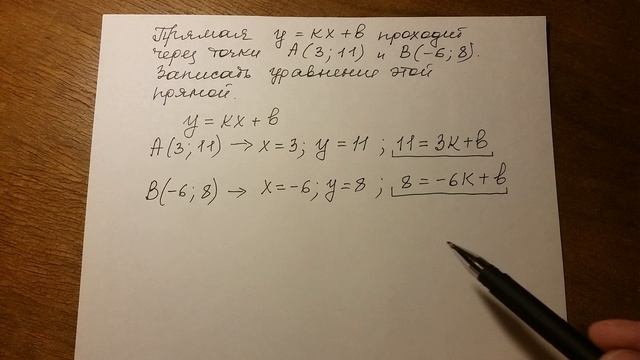 Прямая y = kx + b проходит
через точки A(3; 11) и B(-6; 8).
Записать уравнение этой
прямой.
y = kx + b
A(3; 11) → x = 3; y = 11 ; 11 = 3k + b
B(-6; 8) → x = -6; y = 8 ; 8 = -6k + b